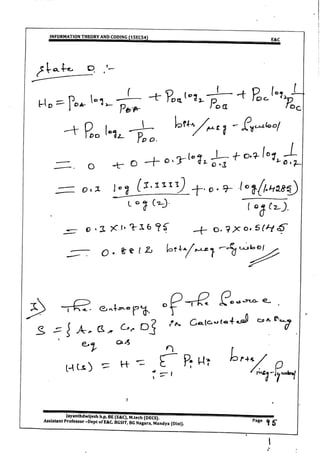 INFORMATION THEORY AND CODING (15EC54) E&C
State D :-
H_D = P_DA log_2 1/P_DA + P_DB log_2 1/P_DB + P_DC log_2 1/P_DC
+ P_DD log_2 1/P_DD bits/msg-symbol
= 0 + 0 + 0.3 log_2 1/0.3 + 0.7 log_2 1/0.7
= 0.3 log (3.3333)/log(2) + 0.7 log(1.4285)/log(2)
= 0.3 X 1.73695 + 0.7 X 0.5145
= 0.8812 bits/msg-symbol
The entropy of the source
S = {A, B, C, D} is calculated using
eq as
H(s) = H = Σ n i=1 Pi Hi bits/msg-symbol
Jayanthdwijesh h.p. BE (E&C), M.tech (DECS).
Assistant Professor -Dept of E&C. BGSIT, BG Nagara, Mandya (Dist).
Page 95